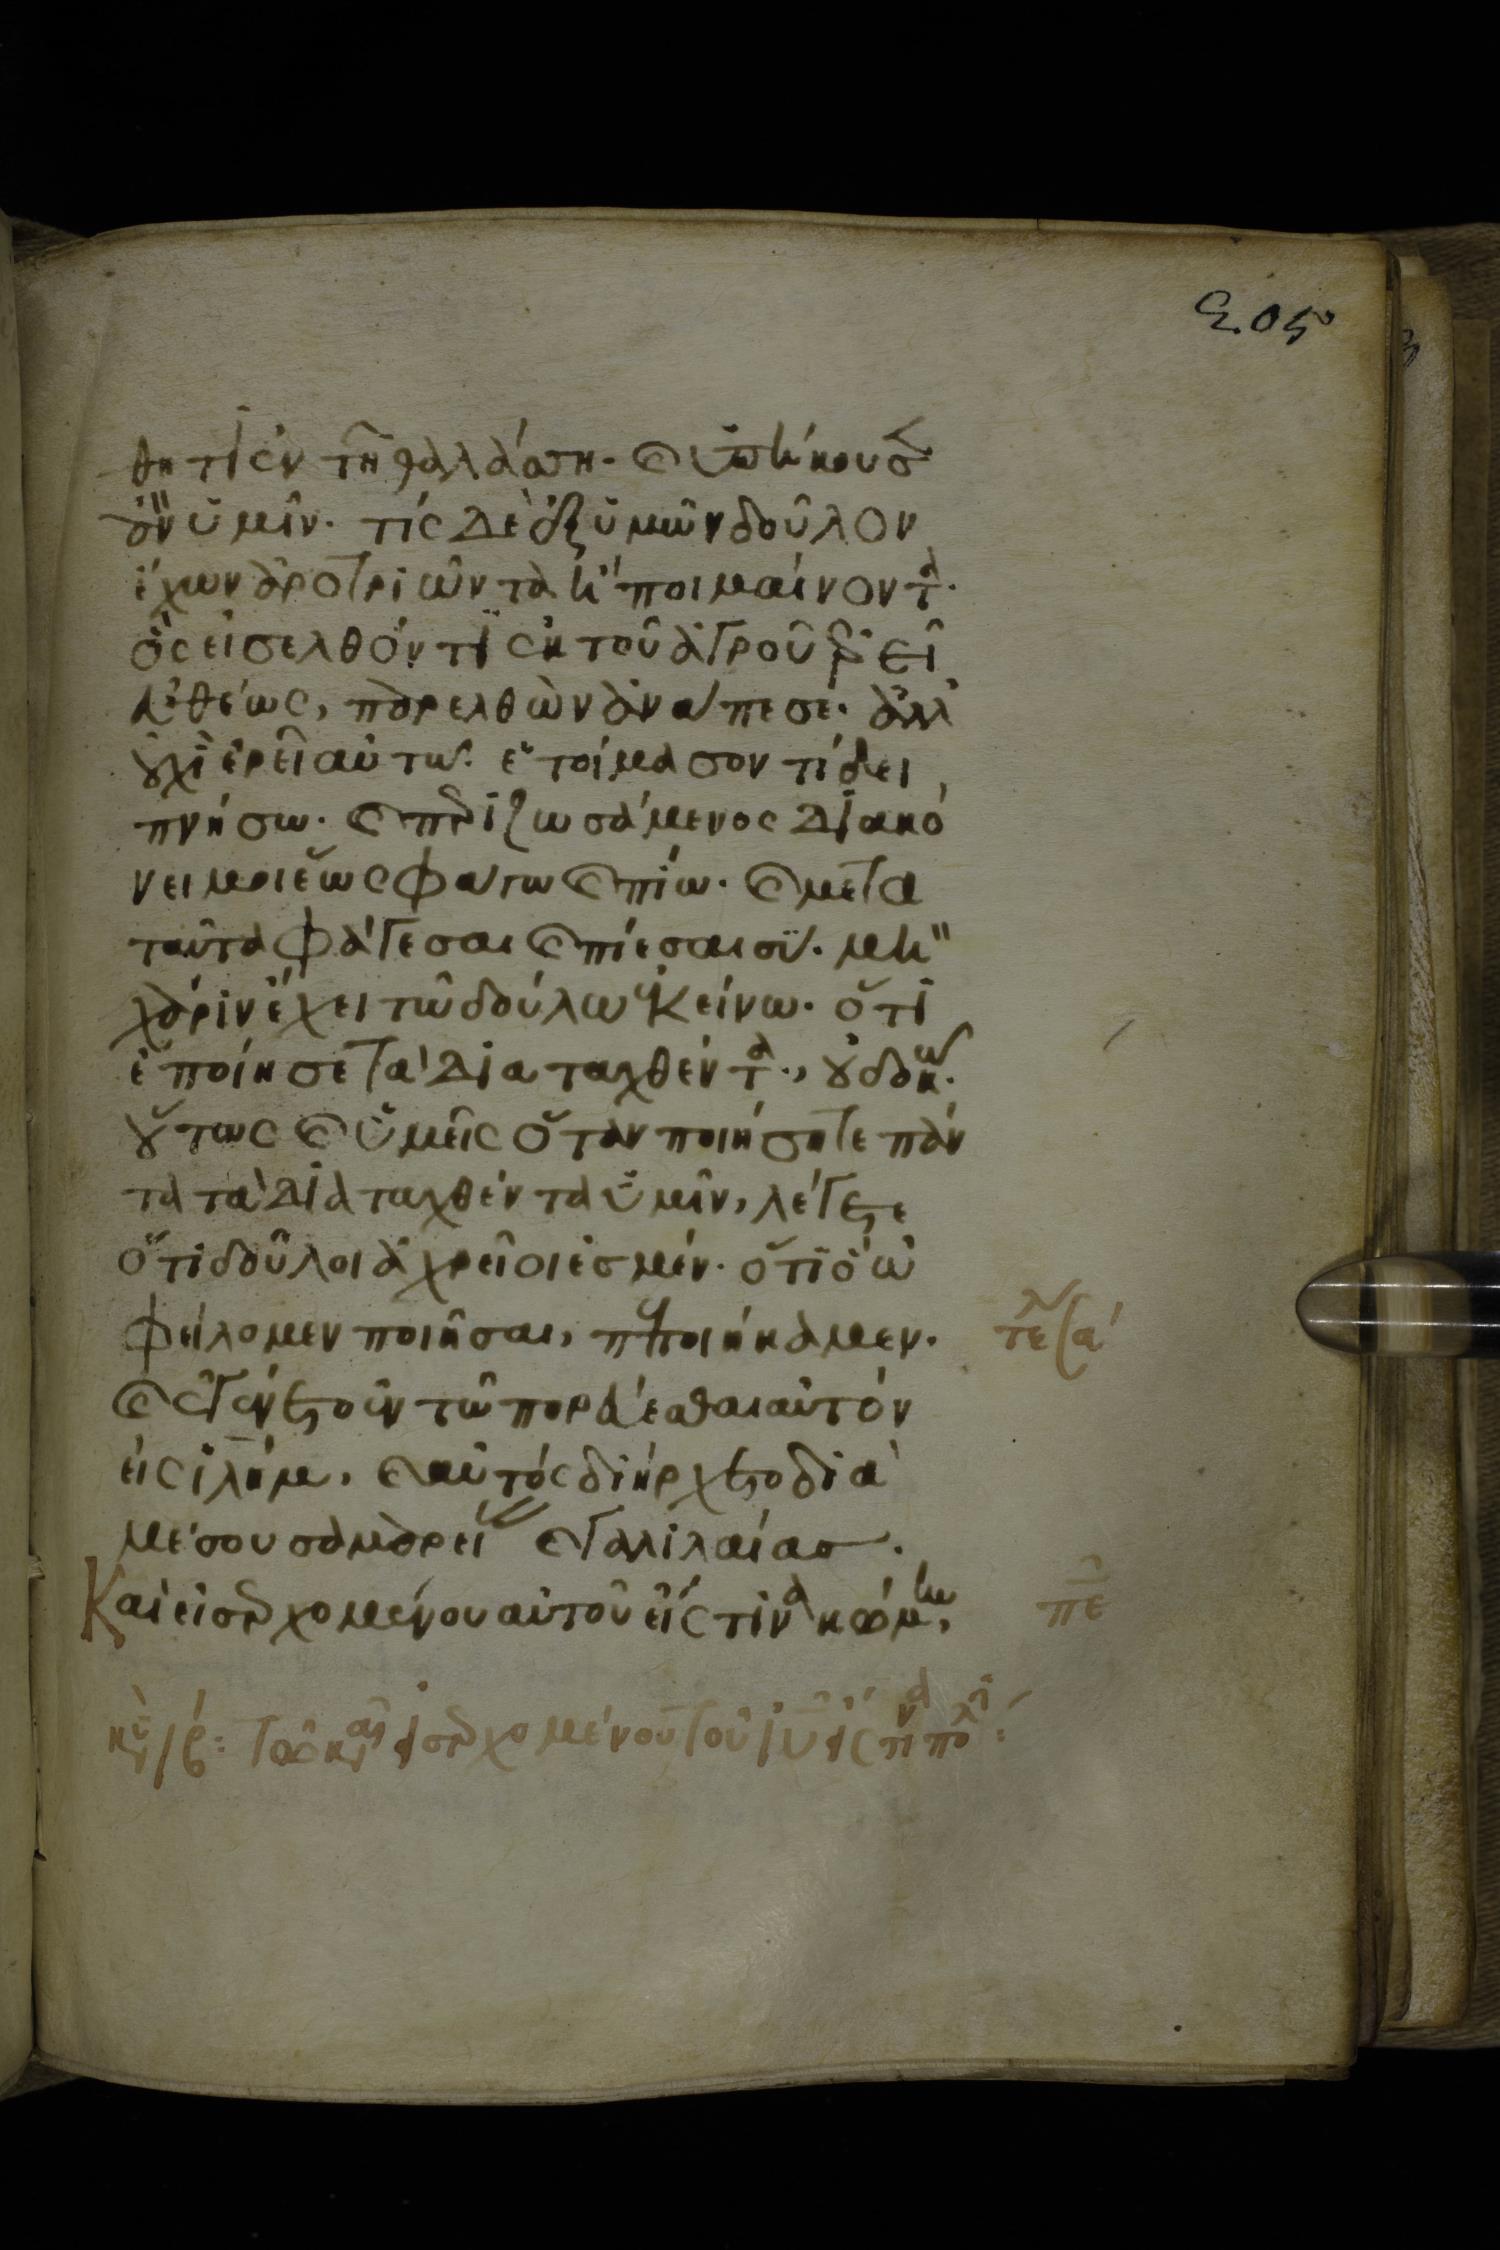 205
θητι ἐν τῆ θαλάσση. καὶ ὑπήκουσεν
ἂν ὑμῖν. τίς δὲ ἐξ ὑμῶν δοῦλον
ἔχων ἀροτριῶντα ἢ ποιμαίνοντα.
ὃς εἰσελθόντι ἐκ τοῦ ἀγροῦ ἐρεῖ
εὐθέως, παρελθὼν ἀνάπεσε. ἀλλ'
οὐχὶ ἐρεῖ αὐτῶ. ἑτοίμασον τί δει
πνήσω. καὶ περιζωσάμενος διακό
νει μοι ἕως φάγω καὶ πίω. καὶ μετὰ
ταῦτα φάγεσαι καὶ πίεσαι σύ. μὴ
χάριν ἔχει τῶ δούλω ἐκείνω. ὅτι
ἐποίησε τὰ διαταχθέντα., οὐ δοκῶ.
οὕτως καὶ ὑμεῖς ὅταν ποιήσητε πάν
τα τὰ διαταχθέντα ὑμῖν, λέγετε
ὅτι δοῦλοι ἀχρεῖοι ἐσμέν. ὅτι ὃ ὠ
φείλομεν ποιῆσαι, πεποιήκαμεν.
καὶ ἐγένετο ἐν τῶ πορεύεσθαι αὐτὸν
εἰς ἱλήμ, καὶ αὐτὸς διήρχετο διὰ
μέσου σαμαρεί καὶ γαλιλαίας.
Καὶ εἰσερχομένου αὐτοῦ εἴς τινα κώμην,